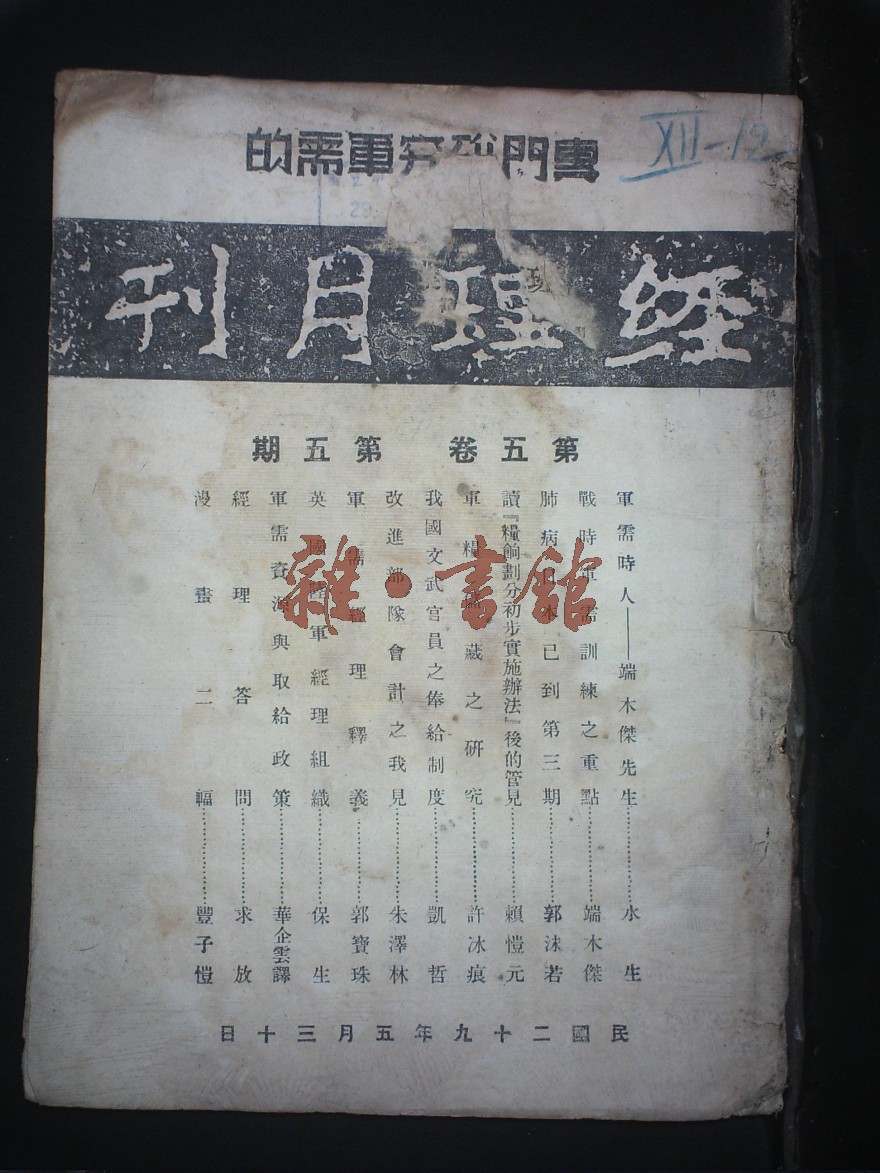 專門研究軍需的
XII-12
29
經理月刊
第五卷 第五期
軍需時人——端木傑先生………水生
戰時軍需訓練之重點………端木傑
肺病日本已到第三期………郭沫若
讀『糧餉劃分初步實施辦法』後的管見………賴愷元
軍糧儲藏之研究………許冰痕
我國文武官員之俸給制度………凱哲
改進部隊會計之我見………朱澤林
軍需經理釋義………郭寶珠
英國陸軍經理組織………保生
軍需資源與取給政策………華企雲譯
經理答問………求放
漫畫二幅………豐子愷
民國二十九年五月三十日
雜·書館